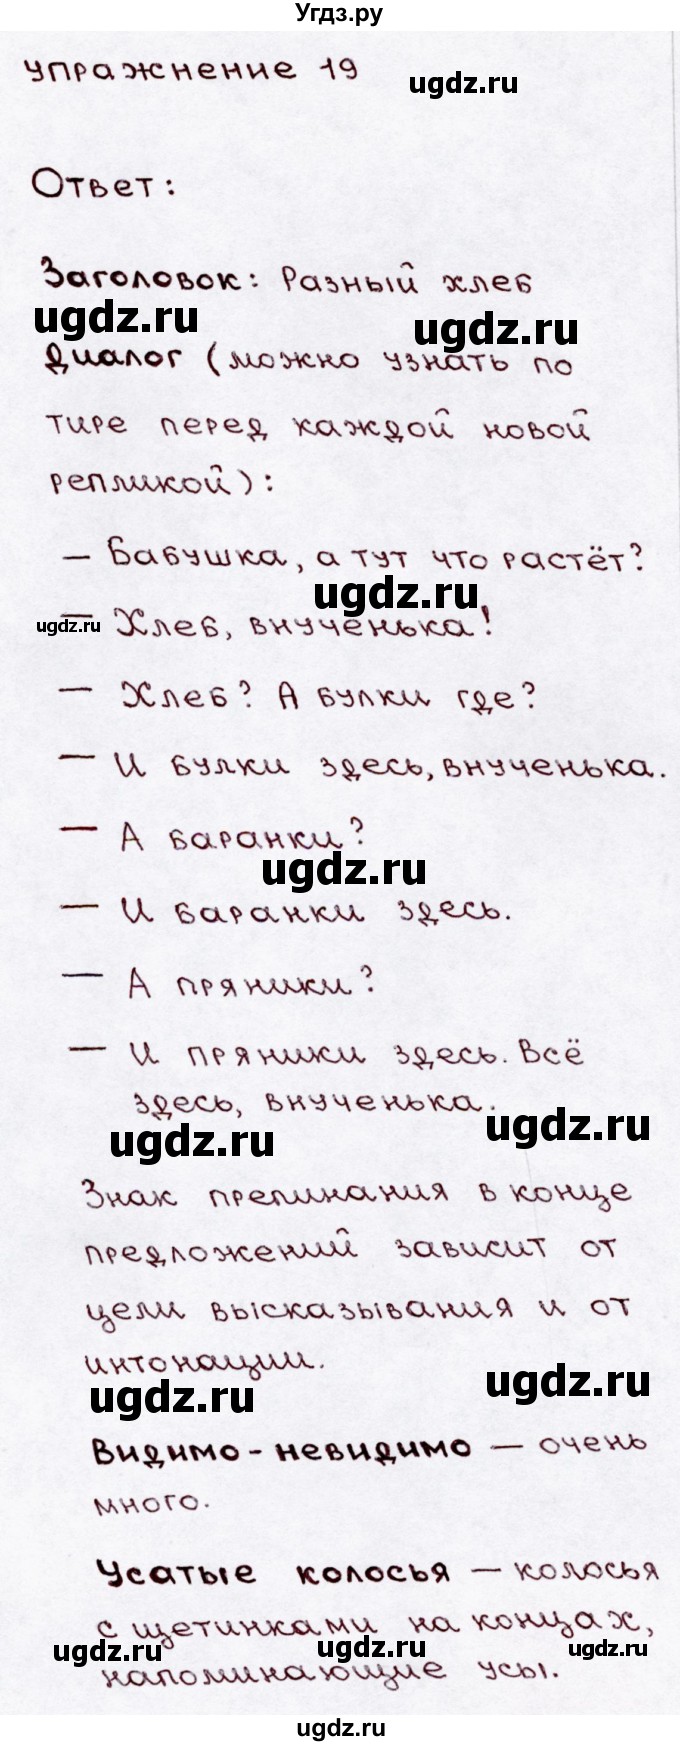 Угдз.ру
упражнение 19
ugdz.ru
Ответ:
Заголовок: Разный хлеб
ugdz.ru
ugdz.ru
Диалог (можно узнать по
тире перед каждой новой
репликой):
— Бабушка, а тут что растёт?
ugdz.ru
ugdz.ru
— Хлеб, внученька!
— Хлеб? А булки где?
— И булки здесь, внученька.
— А баранки?
ugdz.ru
— И баранки здесь.
— А пряники?
— И пряники здесь. Всё
здесь, внученька.
ugdz.ru
ugdz.ru
Знак препинания в конце
предложений зависит от
цели высказывания и от
интонации.
ugdz.ru
ugdz.ru
Видимо-невидимо — очень
много.
Усатые колосья — колосья
с щетинками на концах,
ugdz.ru
ugdz.ru
ugdz.ru
напоминающие усы.
ugdz.ru